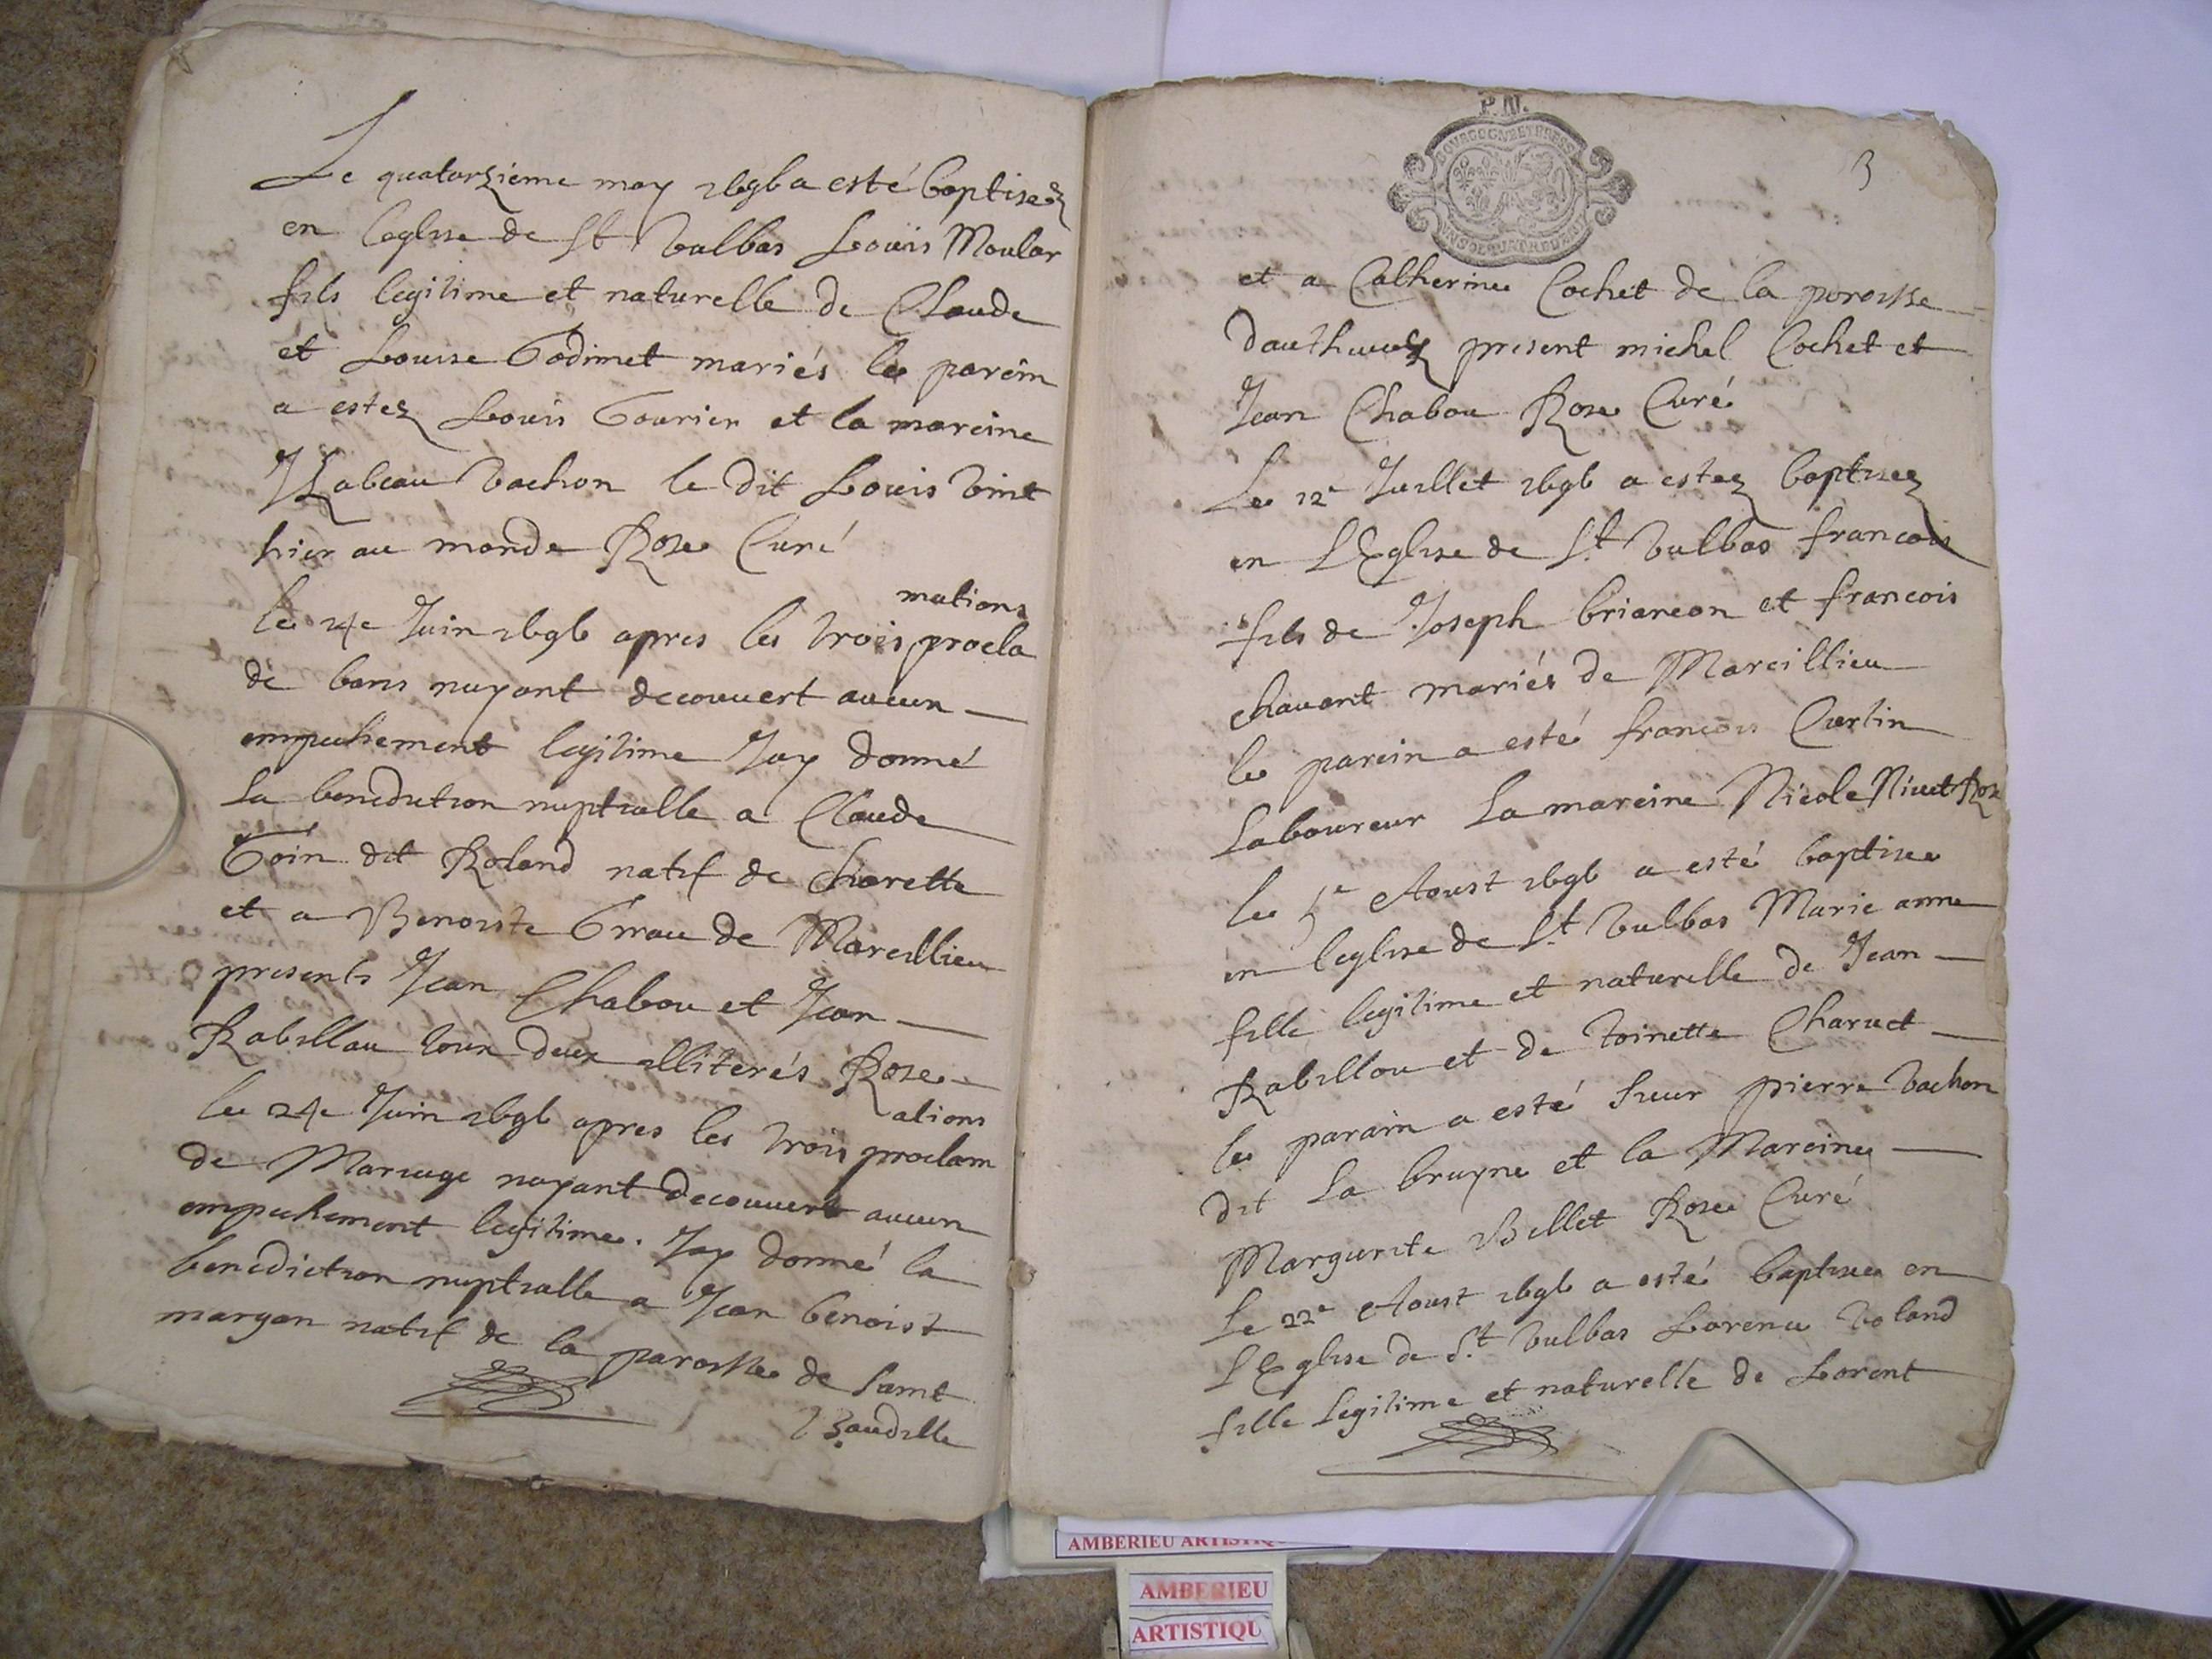 Le quatorzieme may 1696 a esté baptisez
en leglise de St Vulbas Louis Moular
fils legitime et naturelle de Claude
et Louise Godimet mariés le parein
a estez Louis Gourier et la mareine
Ysabeau Vachon le dit Louis vint
hier au monde Rose Curé
mations
le 4e Juin 1696 apres les trois procla
de bans nayant decouvert aucun
empechement legitime Jay donné
la benediction nuptialle a Claude
Goin dit Roland natif de Charette
et a Benoiste de Marcillieu
presents Jean Chabou et Jean
Rabillau tous deux illiterés Rose
ations
le 24e Juin 1696 apres les trois proclam
de Mariage nayant decouvert aucun
empechement legitime. Jay donné la
benediction nuptialle a Jean benoist
margan natif de la paroisse de saint
Baudille
P.M.
BOURGOGNE ET BRESSE
3
et a Catherine Cochet de la paroisse
present michel Cochet et
Jean Chabou Rose Curé
Le 12e Juillet 1696 a estez baptisez
en LEglise de St Vulbas francois
fils de Joseph briancon et francois
chavant mariés de Marcillieu
le parein a esté francois Curtin
Laboureur La mareine Nicole Nivet Rose
le 5e Aoust 1696 a esté baptisee
en leglise de St Vulbas Marie anne
fille legitime et naturelle de Jean
Rabillou et de toinette Charvet
le parain a esté sieur pierre Vachon
dit La bruyne et la Mareine
Marguerite Billet Rose Curé
Le 22e Aoust 1696 a esté baptisee en
LEglise de St Vulbas Lorence Voland
fille Legitime et naturelle de Lorent
AMBERIEU
AMBERIEU
ARTISTIQU